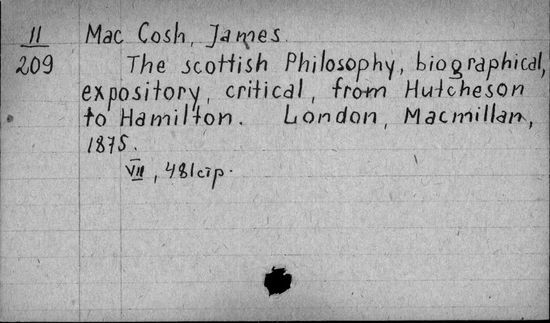 11 Mac Cosh, James.
209 The scottish Philosophy, biographical,
expository, critical, from Hutcheson
to Hamilton. London, Macmillan,
1875.
VII, 481 стр.